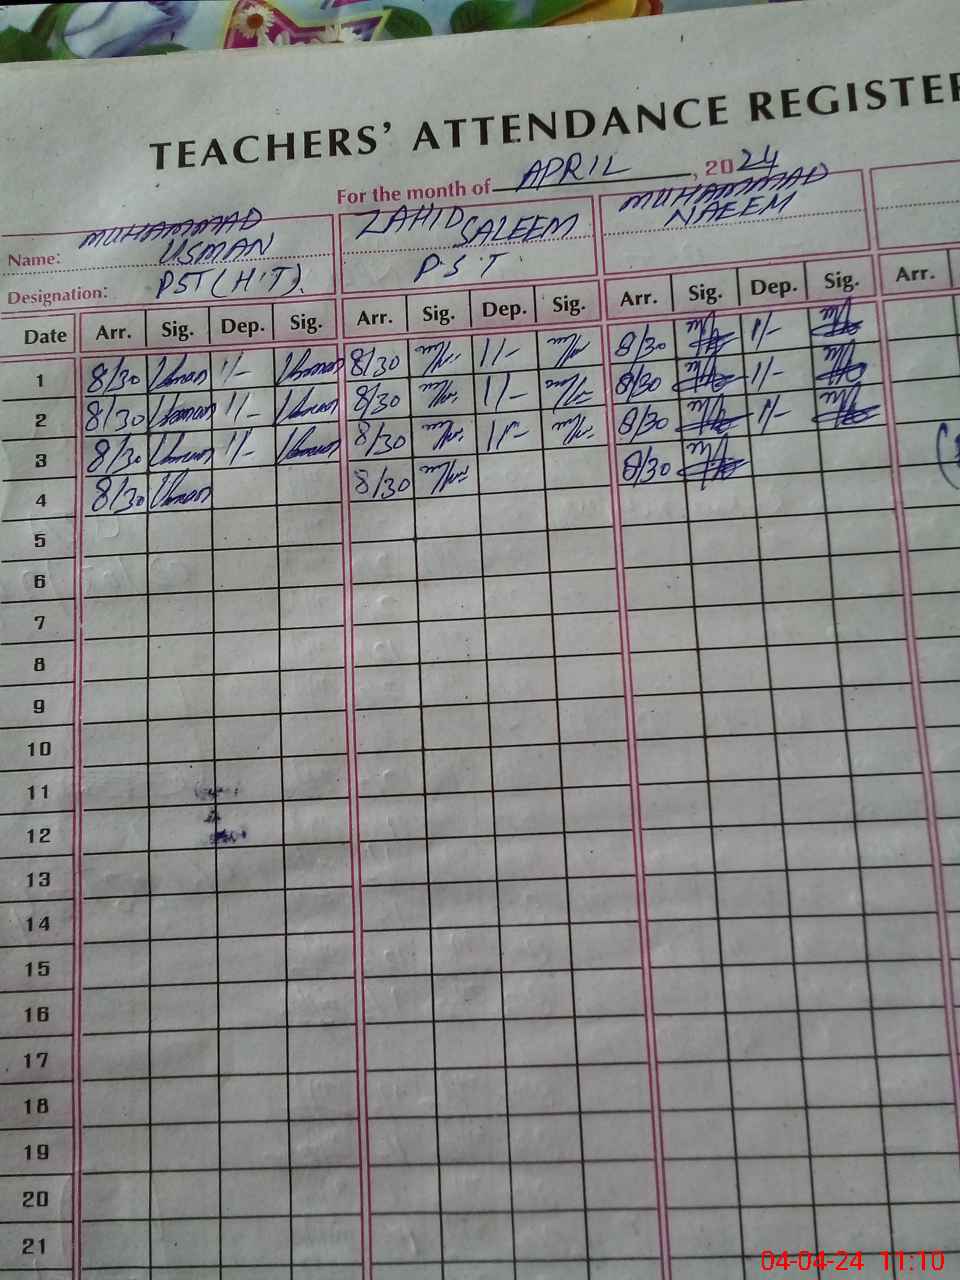 TEACHERS' ATTENDANCE REGISTER
For the month of APRIL, 2024
Name: MUHAMMAD USMAN ZAHID SALEEM MUHAMMAD NAEEM
Designation: PST (H.T). P.S.T.
Date Arr. Sig. Dep. Sig. Arr. Sig. Dep. Sig. Arr. Sig. Dep. Sig. Arr.
1 8/30 Usman 1/- Usman 8/30 1/- 8/30 1/-
2 8/30 Usman 1/- Usman 8/30 1/- 8/30 1/-
3 8/30 Usman 1/- Usman 8/30 1/- 8/30 1/-
4 8/30 Usman 8/30 8/30
5
6
7
8
9
10
11
12
13
14
15
16
17
18
19
20
21
04-04-24 11:10